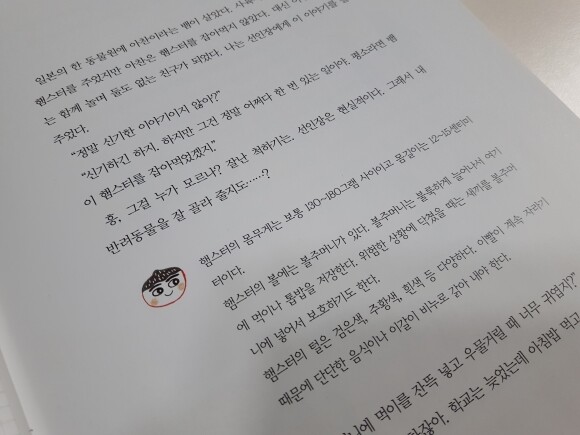 일본의 한 동물원에 아찬이라는 뱀이 살았다.
햄스터를 주었지만 아찬은 햄스터를 잡아먹지 않았다. 대신
는 함께 놀며 둘도 없는 친구가 되었다. 나는 선인장에게 이 이야기를
주었다.
"정말 신기한 이야기이지 않아?"
"신기하긴 하지. 하지만 그건 정말 어쩌다 한 번 있는 일이야. 평소라면 뱀
이 햄스터를 잡아먹었겠지."
흥, 그걸 누가 모르나? 잘난 척하기는. 선인장은 현실적이다. 그래서 내
반려동물을 잘 골라 줄지도……?
햄스터의 몸무게는 보통 130~180그램 사이이고 몸길이는 12~15센티미
터이다.
햄스터의 볼에는 볼주머니가 있다. 볼주머니는 불룩하게 늘어나서 여기
에 먹이나 톱밥을 저장한다. 위험한 상황에 닥쳤을 때는 새끼를 볼주머
니에 넣어서 보호하기도 한다.
햄스터의 털은 검은색, 주황색, 흰색 등 다양하다. 이빨이 계속 자라기
때문에 단단한 음식이나 이갈이 비누로 갉아 내야 한다.
니에 먹이를 잔뜩 넣고 우물거릴 때 너무 귀엽지?"
하잖아. 학교는 늦었는데 아침밥 먹고